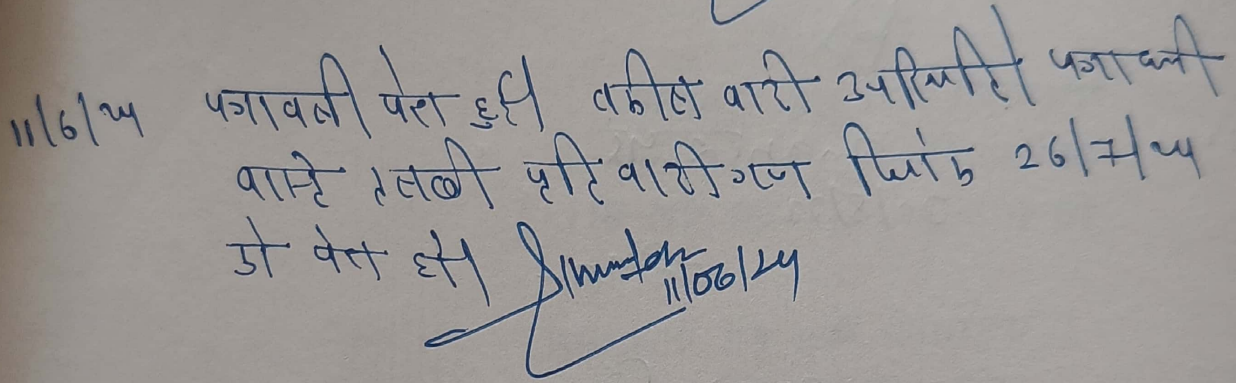 11/6/24 पत्रावली पेश हुई। वकील वादी उपस्थित। पत्रावली
वास्ते तलबी प्रतिवादीगण दिनांक 26/7/24
को पेश हो।
11/06/24